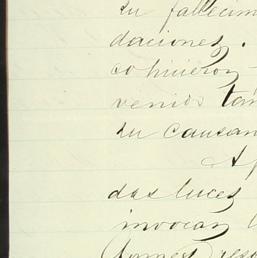 su fallecim
daciones.
cohicieron
venido tam
su causan
Ap
das luces
invocan l
(bones) reso